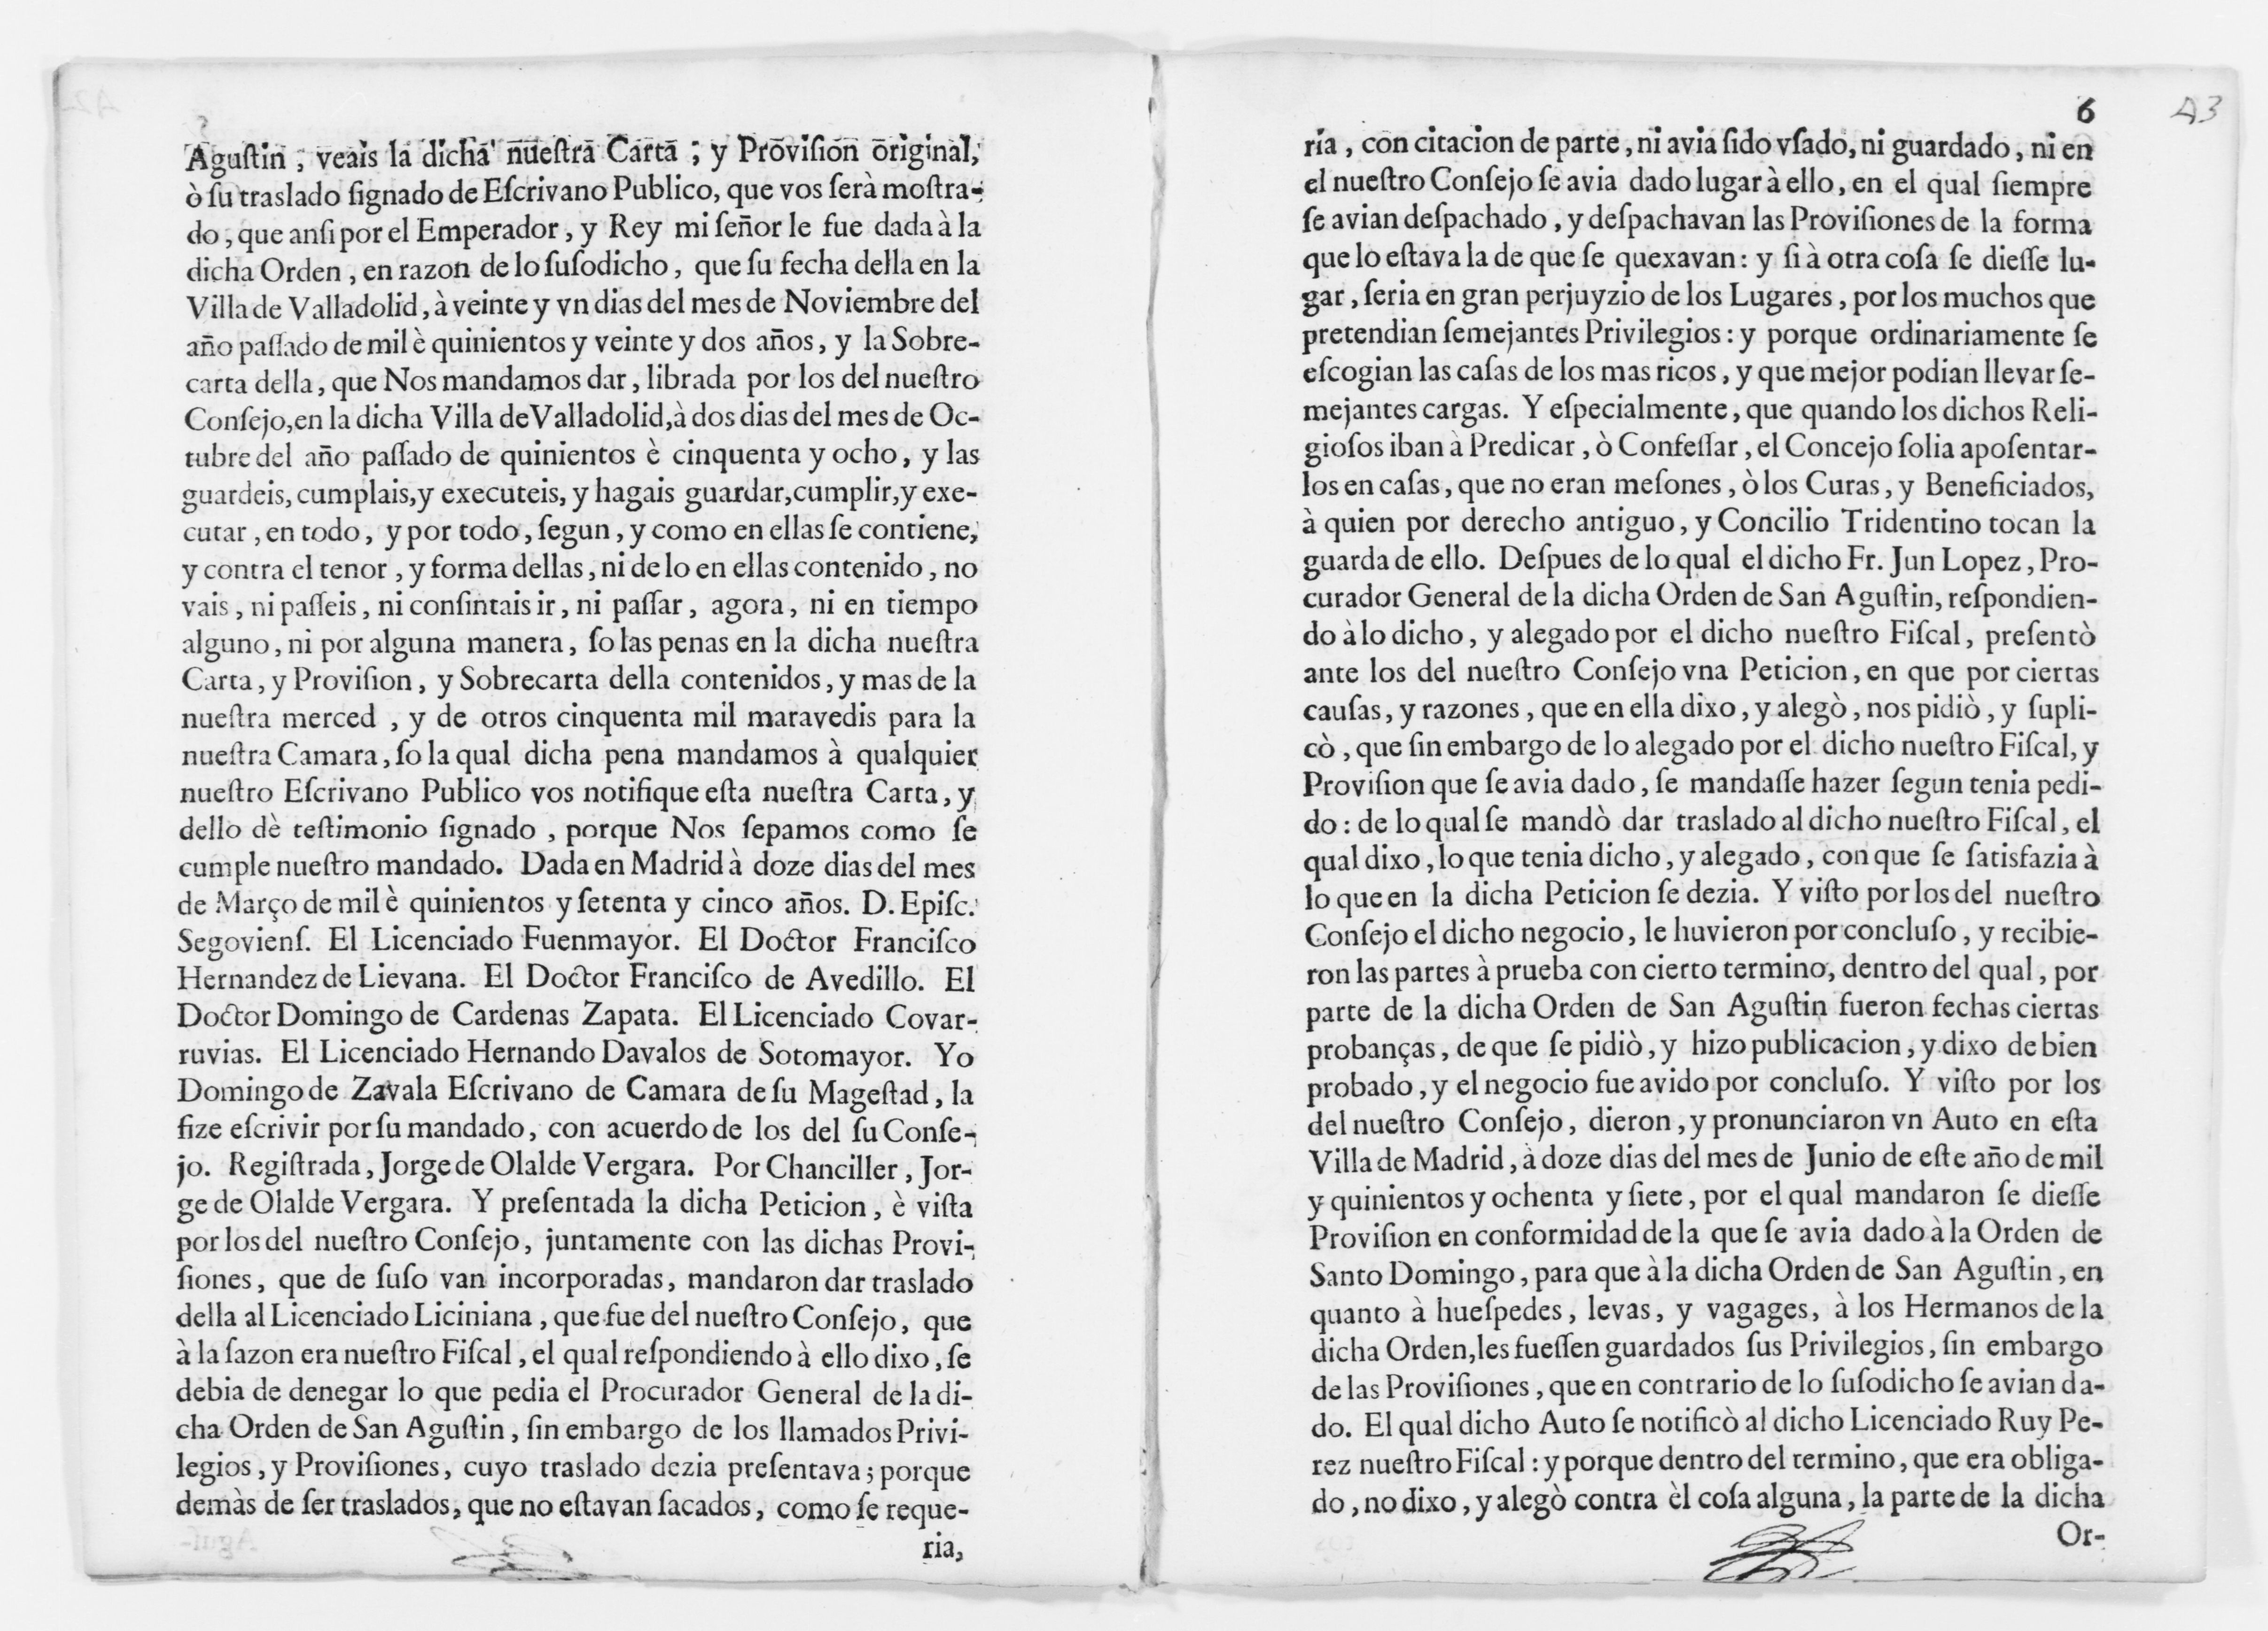 Aguſtin, veais la dicha nueſtra Carta; y Proviſion original,
ò ſu traslado ſignado de Eſcrivano Publico, que vos ſerà moſtra-
do, que anſi por el Emperador, y Rey mi ſeñor le fue dada à la
dicha Orden, en razon de lo ſuſodicho, que ſu fecha della en la
Villa de Valladolid, à veinte y vn dias del mes de Noviembre del
año paſſado de mil è quinientos y veinte y dos años, y la Sobre-
carta della, que Nos mandamos dar, librada por los del nueſtro
Conſejo, en la dicha Villa de Valladolid, à dos dias del mes de Oc-
tubre del año paſſado de quinientos è cinquenta y ocho, y las
guardeis, cumplais, y executeis, y hagais guardar, cumplir, y exe-
cutar, en todo, y por todo, ſegun, y como en ellas ſe contiene,
y contra el tenor, y forma dellas, ni de lo en ellas contenido, no
vais, ni paſſeis, ni conſintais ir, ni paſſar, agora, ni en tiempo
alguno, ni por alguna manera, ſo las penas en la dicha nueſtra
Carta, y Proviſion, y Sobrecarta della contenidos, y mas de la
nueſtra merced, y de otros cinquenta mil maravedis para la
nueſtra Camara, ſo la qual dicha pena mandamos à qualquier
nueſtro Eſcrivano Publico vos notifique eſta nueſtra Carta, y
dello dè teſtimonio ſignado, porque Nos ſepamos como ſe
cumple nueſtro mandado. Dada en Madrid à doze dias del mes
de Março de mil è quinientos y ſetenta y cinco años. D. Epiſc.
Segovienſ. El Licenciado Fuenmayor. El Doctor Franciſco
Hernandez de Lievana. El Doctor Franciſco de Avedillo. El
Doctor Domingo de Cardenas Zapata. El Licenciado Covar-
ruvias. El Licenciado Hernando Davalos de Sotomayor. Yo
Domingo de Zavala Eſcrivano de Camara de ſu Mageſtad, la
fize eſcrivir por ſu mandado, con acuerdo de los del ſu Conſe-
jo. Regiſtrada, Jorge de Olalde Vergara. Por Chanciller, Jor-
ge de Olalde Vergara. Y preſentada la dicha Peticion, è viſta
por los del nueſtro Conſejo, juntamente con las dichas Provi-
ſiones, que de ſuſo van incorporadas, mandaron dar traslado
della al Licenciado Liciniana, que fue del nueſtro Conſejo, que
à la ſazon era nueſtro Fiſcal, el qual reſpondiendo à ello dixo, ſe
debia de denegar lo que pedia el Procurador General de la di-
cha Orden de San Aguſtin, ſin embargo de los llamados Privi-
legios, y Proviſiones, cuyo traslado dezia preſentava; porque
demàs de ſer traslados, que no eſtavan ſacados, como ſe reque-
ria,
6
43
ria, con citacion de parte, ni avia ſido vſado, ni guardado, ni en
el nueſtro Conſejo ſe avia dado lugar à ello, en el qual ſiempre
ſe avian deſpachado, y deſpachavan las Proviſiones de la forma
que lo eſtava la de que ſe quexavan: y ſi à otra coſa ſe dieſſe lu-
gar, ſeria en gran perjuyzio de los Lugares, por los muchos que
pretendian ſemejantes Privilegios: y porque ordinariamente ſe
eſcogian las caſas de los mas ricos, y que mejor podian llevar ſe-
mejantes cargas. Y eſpecialmente, que quando los dichos Reli-
gioſos iban à Predicar, ò Confeſſar, el Concejo ſolia apoſentar-
los en caſas, que no eran meſones, ò los Curas, y Beneficiados,
à quien por derecho antiguo, y Concilio Tridentino tocan la
guarda de ello. Deſpues de lo qual el dicho Fr. Jun Lopez, Pro-
curador General de la dicha Orden de San Aguſtin, reſpondien-
do à lo dicho, y alegado por el dicho nueſtro Fiſcal, preſentò
ante los del nueſtro Conſejo vna Peticion, en que por ciertas
cauſas, y razones, que en ella dixo, y alegò, nos pidiò, y ſupli-
cò, que ſin embargo de lo alegado por el dicho nueſtro Fiſcal, y
Proviſion que ſe avia dado, ſe mandaſſe hazer ſegun tenia pedi-
do: de lo qual ſe mandò dar traslado al dicho nueſtro Fiſcal, el
qual dixo, lo que tenia dicho, y alegado, con que ſe ſatisfazia à
lo que en la dicha Peticion ſe dezia. Y viſto por los del nueſtro
Conſejo el dicho negocio, le huvieron por concluſo, y recibie-
ron las partes à prueba con cierto termino, dentro del qual, por
parte de la dicha Orden de San Aguſtin fueron fechas ciertas
probanças, de que ſe pidiò, y hizo publicacion, y dixo de bien
probado, y el negocio fue avido por concluſo. Y viſto por los
del nueſtro Conſejo, dieron, y pronunciaron vn Auto en eſta
Villa de Madrid, à doze dias del mes de Junio de eſte año de mil
y quinientos y ochenta y ſiete, por el qual mandaron ſe dieſſe
Proviſion en conformidad de la que ſe avia dado à la Orden de
Santo Domingo, para que à la dicha Orden de San Aguſtin, en
quanto à hueſpedes, levas, y vagages, à los Hermanos de la
dicha Orden, les fueſſen guardados ſus Privilegios, ſin embargo
de las Proviſiones, que en contrario de lo ſuſodicho ſe avian da-
do. El qual dicho Auto ſe notificò al dicho Licenciado Ruy Pe-
rez nueſtro Fiſcal: y porque dentro del termino, que era obliga-
do, no dixo, y alegò contra èl coſa alguna, la parte de la dicha
Or-